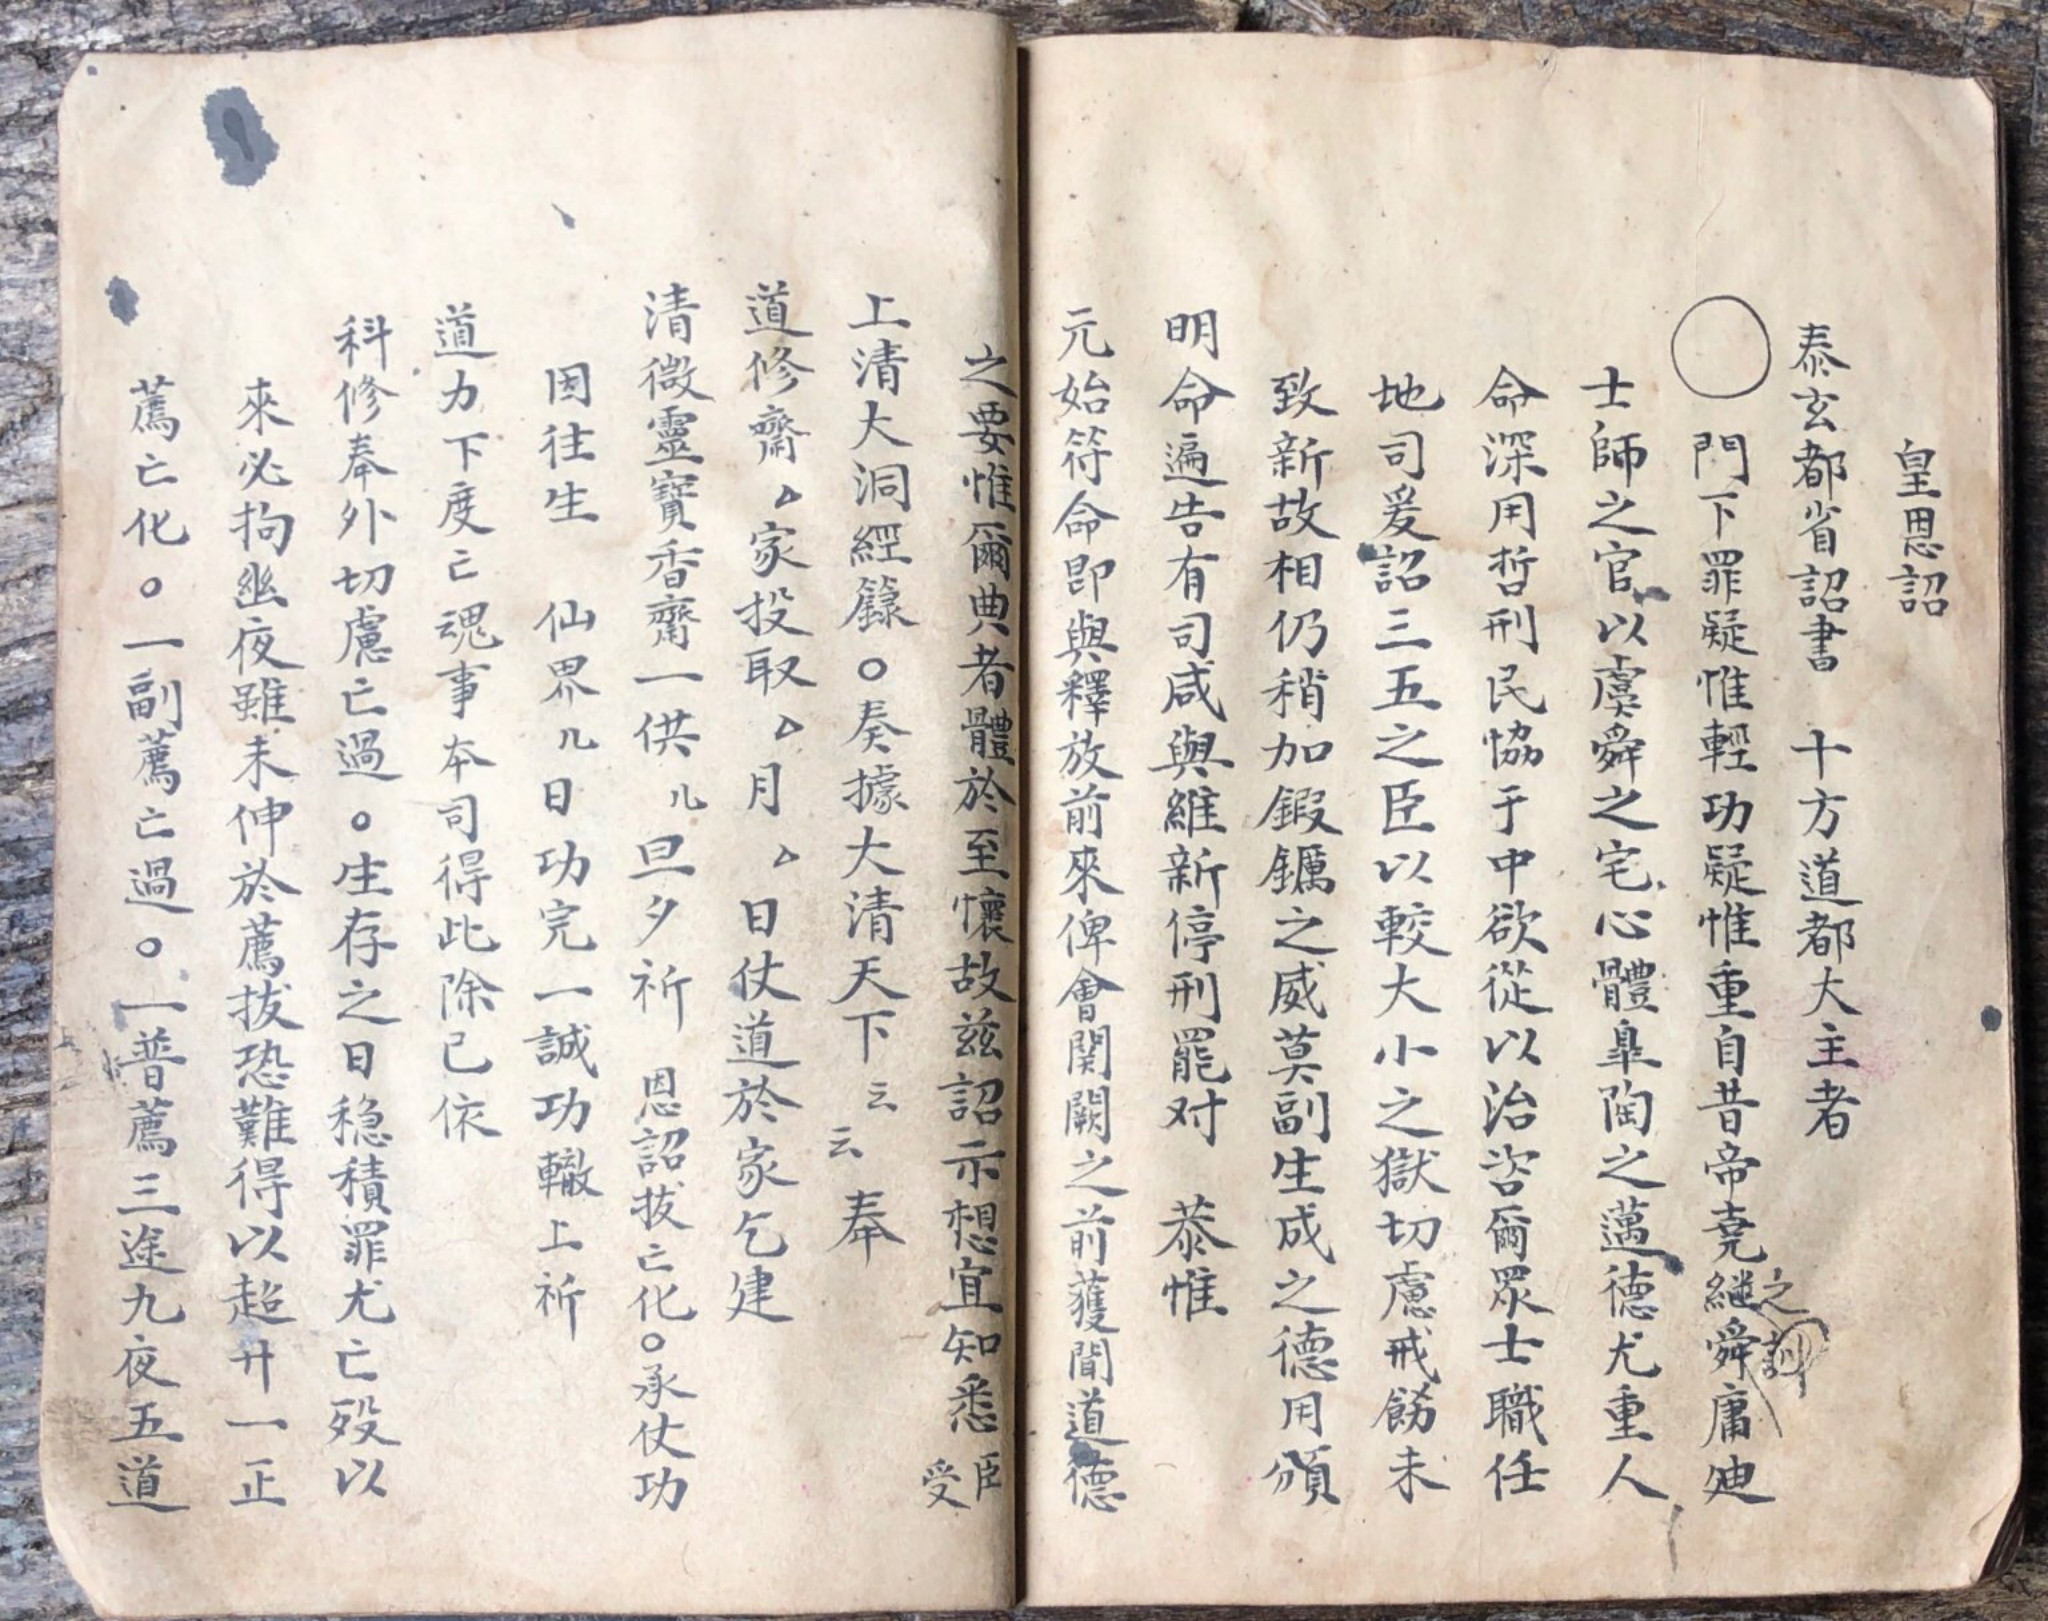 皇恩詔
泰玄都省詔書 十方道都大主者
○門下罪疑惟輕功疑惟重自昔帝堯繼舜庸廸
之訓
士師之官以虞舜之宅心體臯陶之邁德尤重人
命深用哲刑民恊于中欲從以治咨爾眾士職任
地司爰詔三五之臣以較大小之獄切慮戒飭未
致新故相仍稍加鍜鑼之威莫副生成之德用頒
明命遍告有司咸與維新停刑罷对 恭惟
元始符命即與釋放前來俾會開闕之前獲聞道德
之要惟爾典者體於至懷故茲詔示想宜知悉 臣受
上清大洞經籙○奏據大清天下云云奉
道修齋厶家投取厶月厶日仗道於家乞建
清微靈寶香齋一供几旦夕祈 恩詔拔亡化○承仗功
因往生 仙界几日功完一誠功轍上祈
道力下度亡魂事本司得此除已依
科修奉外切慮亡過○生存之日稳積罪尤亡歿以
來必拘幽夜雖未伸於薦拔恐難得以超升一正
薦亡化○一副薦亡過○一普薦三途九夜五道